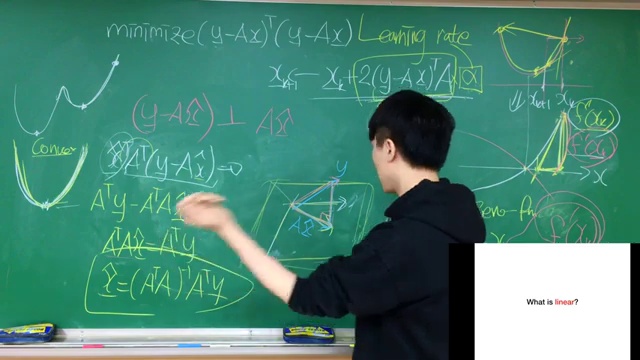 minimize(y-Ax)ᵀ(y-Ax)
Learning rate
x_{k+1} ← x_k + 2(y-Ax)ᵀA α
(y-Ax̂) ⊥ Ax̂
Convex
x̂ᵀAᵀ(y-Ax̂)=0
Aᵀy-AᵀA
AᵀAx̂=Aᵀy
x̂=(AᵀA)⁻¹Aᵀy
y
Ax̂
x_{k+1} x_k
x
What is linear?